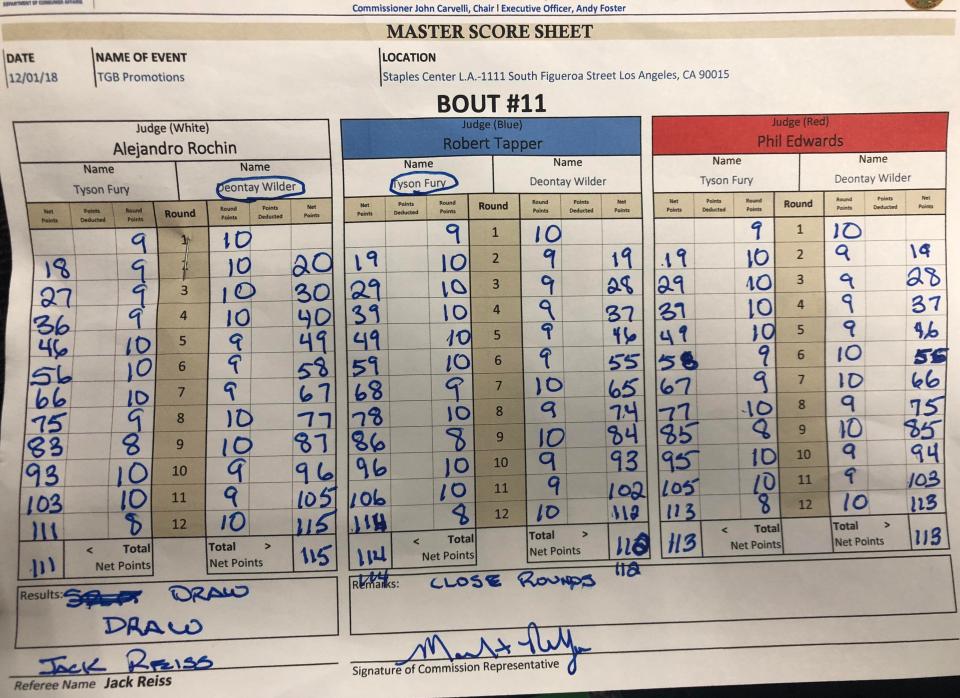 DEPARTMENT OF CONSUMER AFFAIRS
Commissioner John Carvelli, Chair | Executive Officer, Andy Foster
MASTER SCORE SHEET
DATE NAME OF EVENT LOCATION
12/01/18 TGB Promotions Staples Center L.A.-1111 South Figueroa Street Los Angeles, CA 90015
BOUT #11
Judge (White) Judge (Blue) Judge (Red)
Alejandro Rochin Robert Tapper Phil Edwards
Name Name Name Name Name Name
Tyson Fury Deontay Wilder Tyson Fury Deontay Wilder Tyson Fury Deontay Wilder
Net Points Points Deducted Round Points Round Round Points Points Deducted Net Points Net Points Points Deducted Round Points Round Round Points Points Deducted Net Points Net Points Points Deducted Round Points Round Round Points Points Deducted Net Points
9 1 10 9 1 10 9 1 10
18 9 10 20 19 10 2 9 19 19 10 2 9 19
27 9 3 10 30 29 10 3 9 28 29 10 3 9 28
36 9 4 10 40 39 10 4 9 37 39 10 4 9 37
46 10 5 9 49 49 10 5 9 46 49 10 5 9 46
56 10 6 9 58 59 10 6 9 55 58 9 6 10 56
66 10 7 9 67 68 9 7 10 65 67 9 7 10 66
75 9 8 10 77 78 10 8 9 74 77 10 8 9 75
83 8 9 10 87 86 8 9 10 84 85 8 9 10 85
93 10 10 9 96 96 10 10 9 93 95 10 10 9 94
103 10 11 9 105 106 10 11 9 102 105 10 11 9 103
111 8 12 10 115 114 8 12 10 112 113 8 12 10 113
111 < Total Net Points Total > Net Points 115 114 < Total Net Points Total > Net Points 113 < Total Net Points Total > Net Points 113
114 112
Results: DRAW Remarks: CLOSE ROUNDS
DRAW
JACK REISS
Referee Name Jack Reiss Signature of Commission Representative